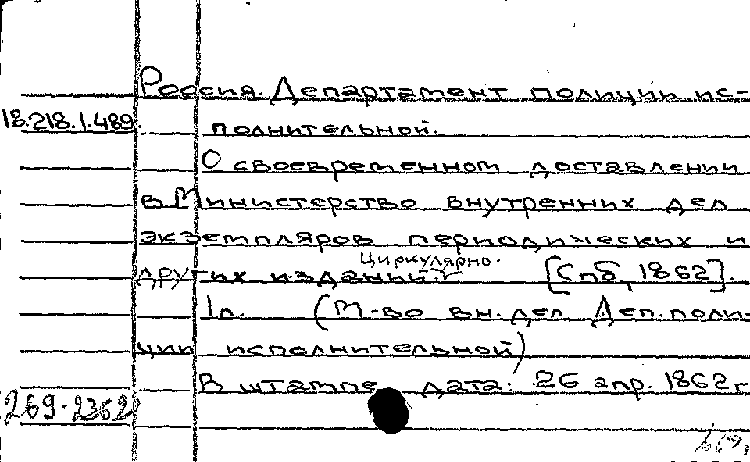 Россия. Департамент полиции ис-
18.218.1.489. полнительной.
О своевременном доставлении
в Министерство внутренних дел
экземпляров периодических и
Циркулярно.
других изданий. [Спб, 1862].
1л. (М-во вн. дел. Деп. поли-
ции исполнительной)
В штампе дата: 26 апр. 1862 г.
269-2362